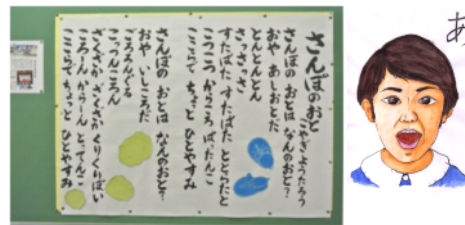 さんぽのおと
こやぎようたろう
さんぽの おとは なんのおと?
おや あしおとだ
とんとんとんとん
さっさっさっ
すたぱた すたぱた ととらたと
こつこつ からころ ぱったんこ
ここらで ちょっと ひとやすみ
さんぽの おとは なんのおと?
おや いしころだ
ごろろんぐる
こっつんころん
ざくざか ざくざか くりくりぱい
ころろーん からーん とってんこ
ここらで ちょっと ひとやすみ
あ